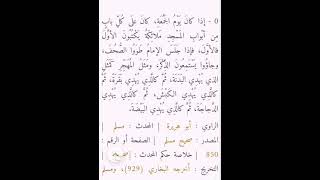 0 - إذا كانَ يَوْمُ الجُمُعَةِ، كانَ علَى كُلِّ بابٍ
مِن أبْوابِ المَسْجِدِ مَلائِكَةٌ يَكْتُبُونَ الأوَّلَ
فالأوَّلَ، فإذا جَلَسَ الإمامُ طَوَوُا الصُّحُفَ،
وجاؤُوا يَسْتَمِعُونَ الذِّكْرَ، ومَثَلُ المُهَجِّرِ كَمَثَلِ
الذي يُهْدِي البَدَنَةَ، ثُمَّ كالَّذِي يُهْدِي بَقَرَةً، ثُمَّ
كالَّذِي يُهْدِي الكَبْشَ، ثُمَّ كالَّذِي يُهْدِي
الدَّجاجَةَ، ثُمَّ كالَّذِي يُهْدِي البَيْضَةَ.
الراوي : أبو هريرة | المحدث : مسلم |
المصدر : صحيح مسلم | الصفحة أو الرقم :
850 | خلاصة حكم المحدث : [صحيح] |
التخريج : أخرجه البخاري (929)، ومسلم